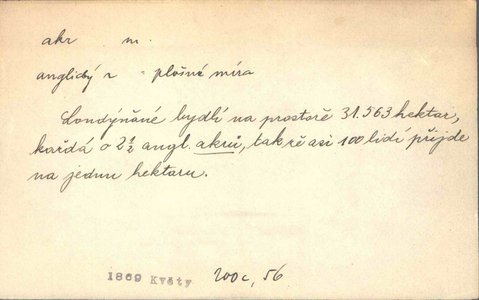 akr m.
anglický r plošná míra
Londýňané bydlí na prostoře 31.563 hektar,
každá o 2½ angl. akrů, takže asi 100 lidí přijde
na jednu hektaru.
1869 Květy 200c, 56